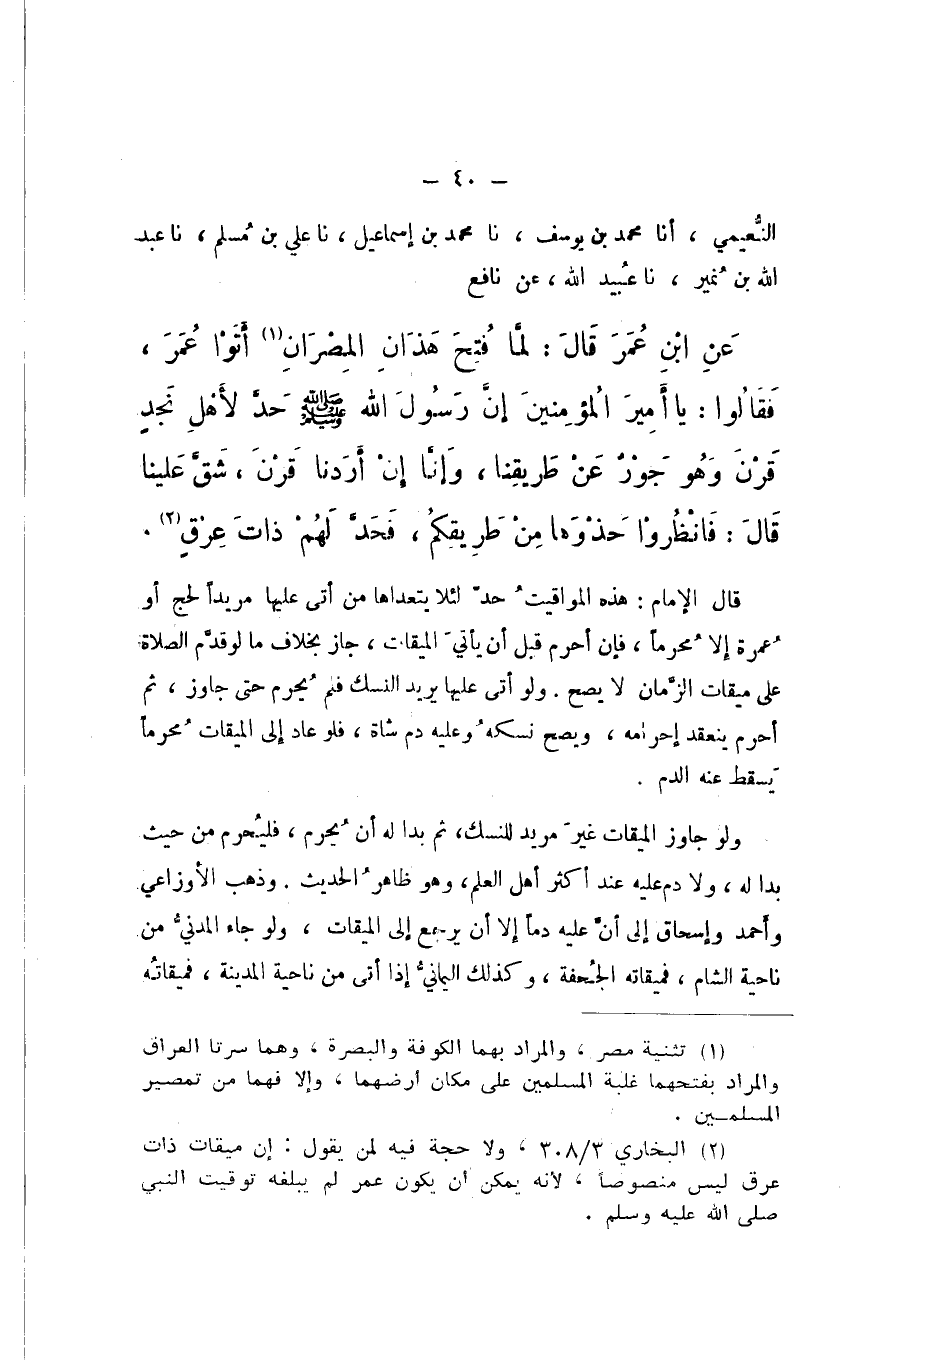 — ٤٠ —
النُّعيمي ، أنا محمد بن يوسف ، نا محمد بن إسماعيل ، نا علي بن مُسلم ، نا عبد
الله بن نُمير ، نا عُبيد الله ، عن نافع
عَنِ ابْنِ عُمَرَ قَالَ : لَمَّا فُتِحَ هَذَانِ المِصْرَانِ(١) أَتَوْا عُمَرَ ،
فَقَالُوا : يا أَمِيرَ المُؤمِنينَ إنَّ رَسُولَ الله ﷺ حَدَّ لأَهْلِ نَجدٍ
قَرْنَ وَهُو جَوْرٌ عَنْ طَريقِنا ، وَإنَّا إنْ أَرَدنا قَرْنَ ، شَقَّ عَلينا
قَالَ : فَانْظُروْا حَذْوَها مِنْ طَرِيقِكُم ، فَحَدَّ لَهُمْ ذاتَ عِرْقٍ(٢) .
قال الإمام : هذه المواقيتُ حدّ لئلا يتعداها من أتى عليها مريداً لحج أو
عُمرة إلا مُحرماً ، فإن أحرم قبل أن يأتيَ الميقات ، جاز بخلاف ما لو قدَّم الصلاة
على ميقات الزَّمان لا يصح . ولو أتى عليها يريد النسك فلم يُحرم حتى جاوز ، ثم
أحرم ينعقد إحرامه ، ويصح نسكهُ وعليه دم شاة ، فلو عاد إلى الميقات مُحرماً
يَسقط عنه الدم .
ولو جاوز الميقات غيرَ مريد للنسك، ثم بدا له أن يُحرم ، فليُحرم من حيث
بدا له ، ولا دم عليه عند أكثر أهل العلم، وهو ظاهرُ الحديث . وذهب الأوزاعي
وأحمد وإسحاق إلى أنَّ عليه دماً إلا أن يرجع إلى الميقات ، ولو جاء المدنيُّ من
ناحية الشام ، فميقاته الجُحفة ، وكذلك اليمانيُّ إذا أتى من ناحية المدينة ، فميقاتُه
(١) تثنية مصر ، والمراد بهما الكوفة والبصرة ، وهما سرتا العراق
والمراد بفتحهما غلبة المسلمين على مكان أرضهما ، وإلا فهما من تمصير
المسلمين .
(٢) البخاري ٣٠٨/٣ ، ولا حجة فيه لمن يقول : إن ميقات ذات
عرق ليس منصوصاً ، لأنه يمكن أن يكون عمر لم يبلغه توقيت النبي
صلى الله عليه وسلم .